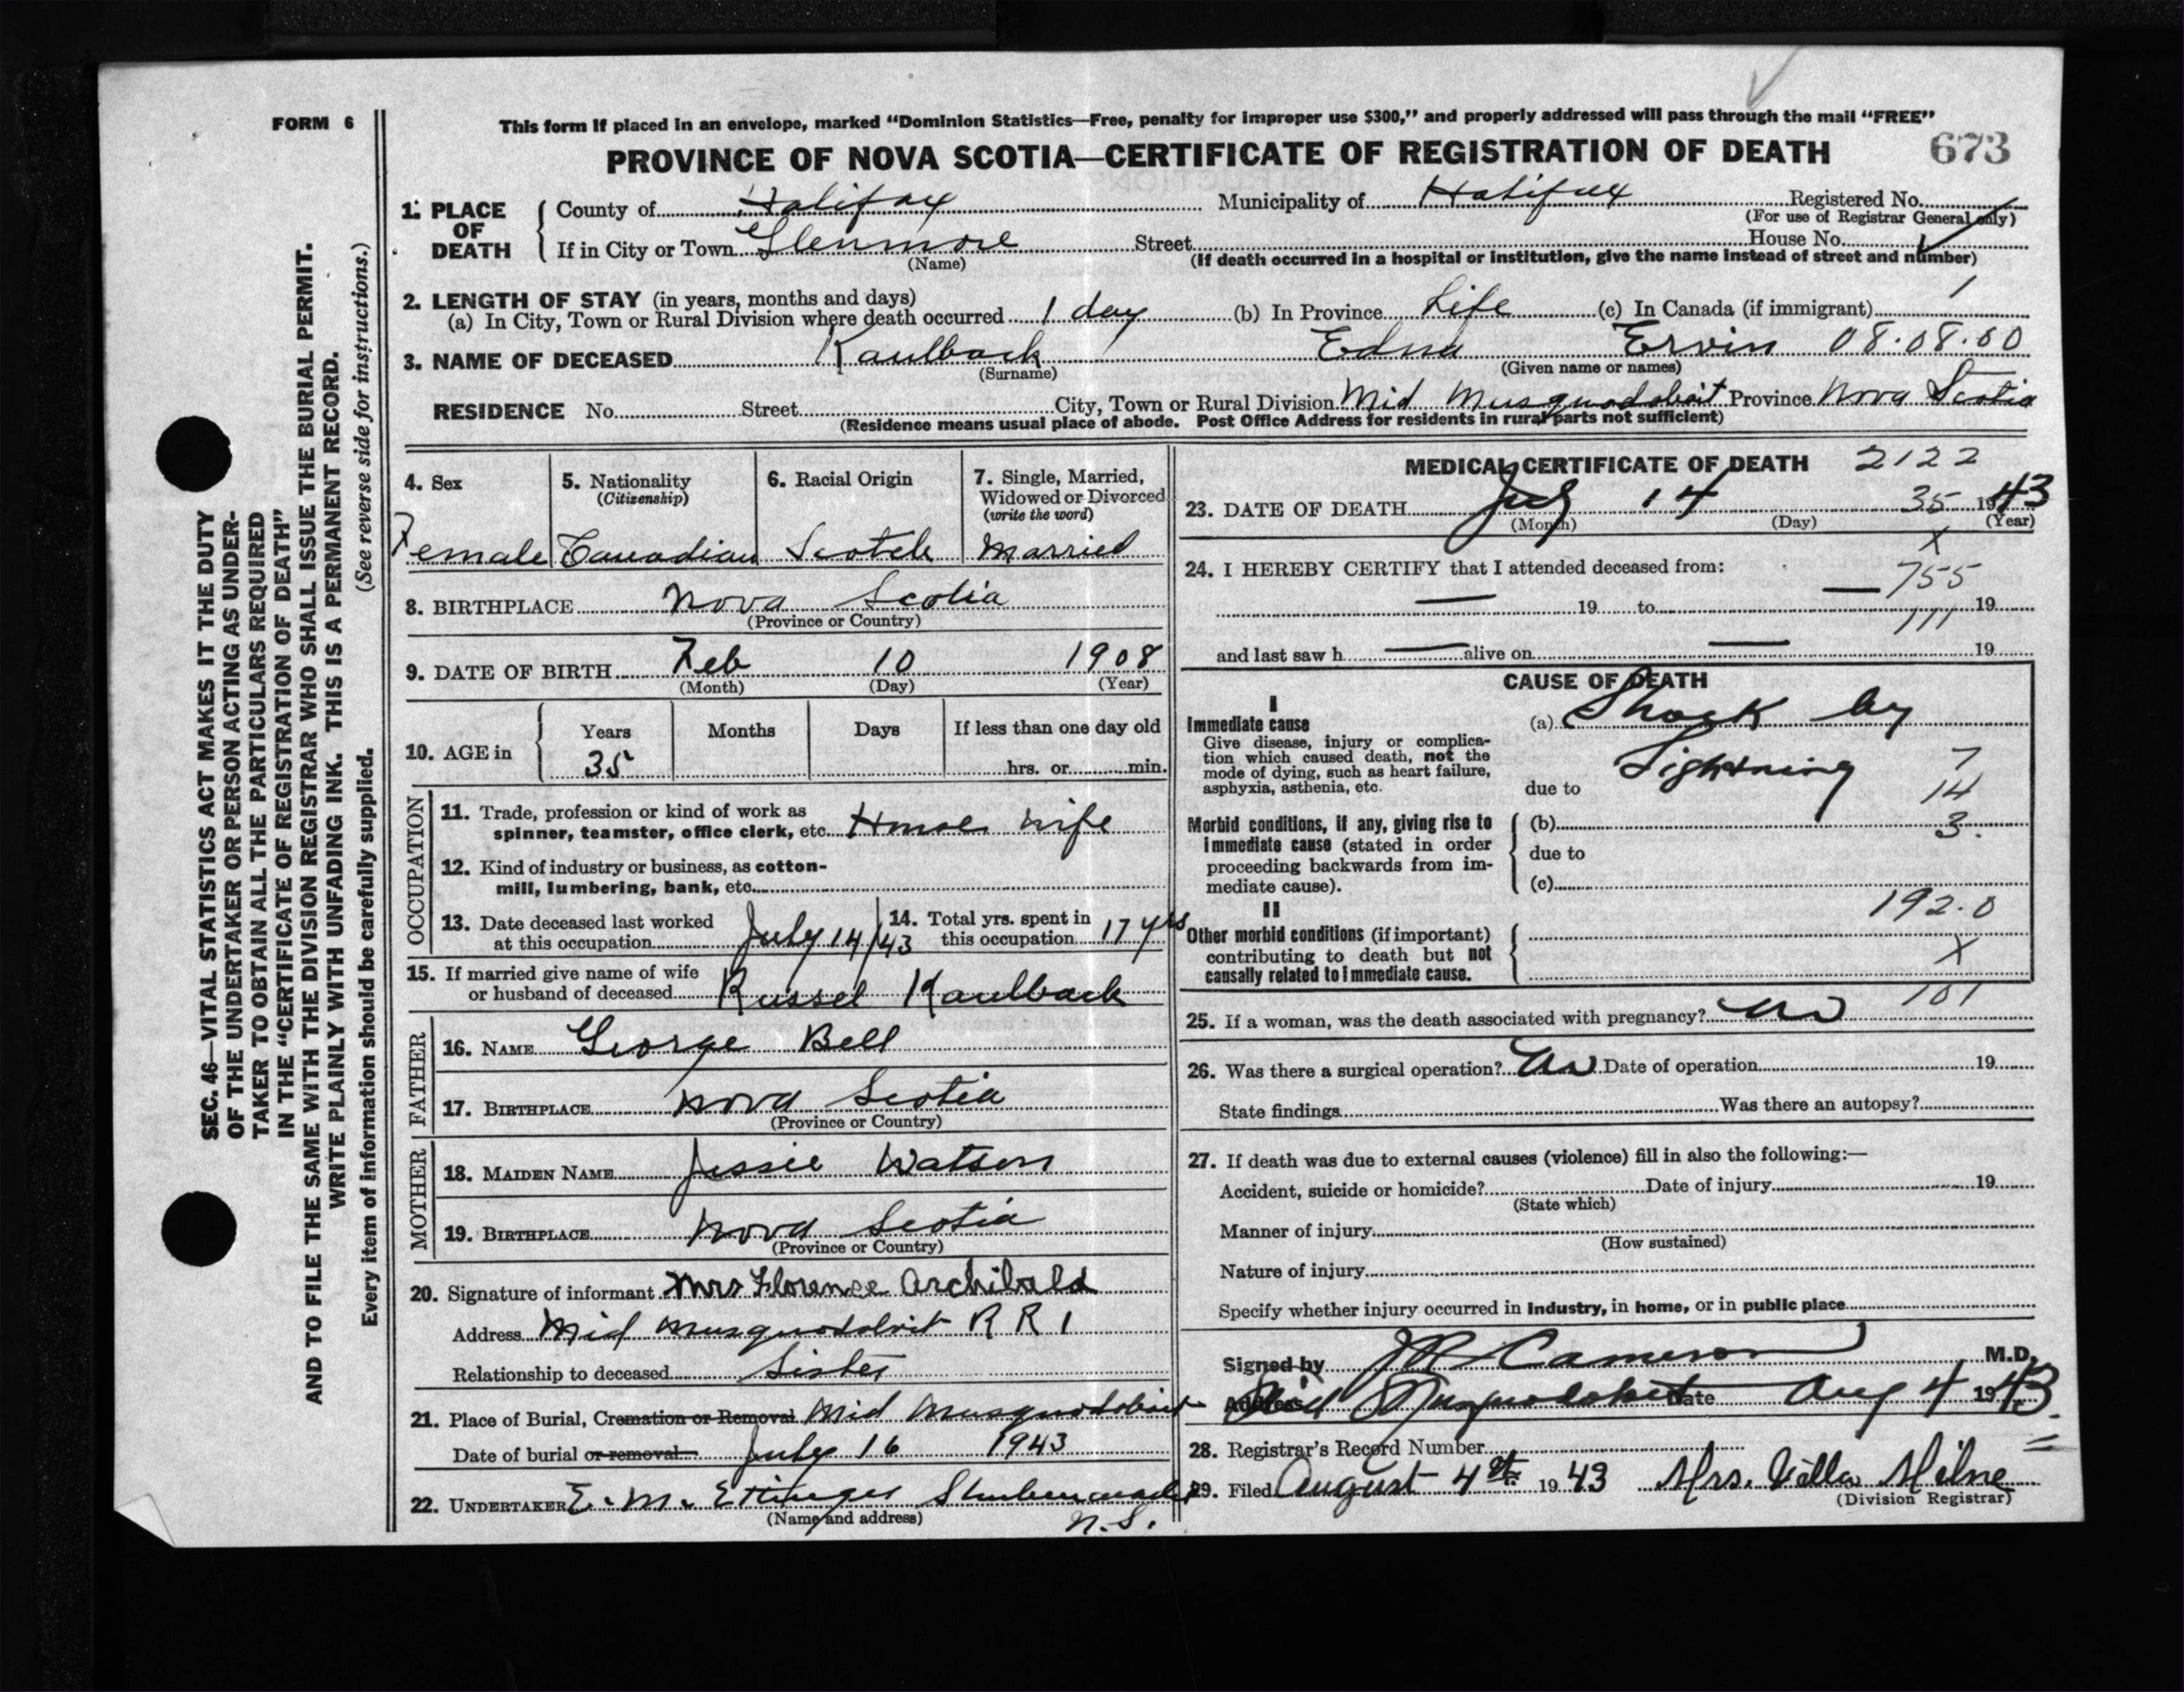 FORM 6
This form if placed in an envelope, marked “Dominion Statistics—Free, penalty for improper use $300,” and properly addressed will pass through the mail “FREE”
PROVINCE OF NOVA SCOTIA—CERTIFICATE OF REGISTRATION OF DEATH 673
1. PLACE OF DEATH
County of Halifax Municipality of Halifax Registered No.
(For use of Registrar General only)
If in City or Town Glenmore Street House No.
(Name) (If death occurred in a hospital or institution, give the name instead of street and number)
2. LENGTH OF STAY (in years, months and days)
(a) In City, Town or Rural Division where death occurred 1 day (b) In Province Life (c) In Canada (if immigrant)
3. NAME OF DECEASED Kaulback Edna Ervin 08.08.00
(Surname) (Given name or names)
RESIDENCE No. Street City, Town or Rural Division Mid Musquodoboit Province Nova Scotia
(Residence means usual place of abode. Post Office Address for residents in rural parts not sufficient)
4. Sex
Female
5. Nationality
(Citizenship)
Canadian
6. Racial Origin
Scotch
7. Single, Married,
Widowed or Divorced
(write the word)
Married
8. BIRTHPLACE Nova Scotia
(Province or Country)
9. DATE OF BIRTH Feb 10 1908
(Month) (Day) (Year)
10. AGE in
Years Months Days If less than one day old
35 hrs. or min.
OCCUPATION
11. Trade, profession or kind of work as
spinner, teamster, office clerk, etc. House wife
12. Kind of industry or business, as cotton-
mill, lumbering, bank, etc.
13. Date deceased last worked
at this occupation July 14/43
14. Total yrs. spent in
this occupation 17 yrs
15. If married give name of wife
or husband of deceased Russel Kaulback
FATHER
16. NAME George Bell
17. BIRTHPLACE Nova Scotia
(Province or Country)
MOTHER
18. MAIDEN NAME Jessie Watson
19. BIRTHPLACE Nova Scotia
(Province or Country)
20. Signature of informant Mrs Florence Archibald
Address Mid Musquodoboit R R 1
Relationship to deceased Sister
21. Place of Burial, Cremation or Removal Mid Musquodoboit
Date of burial or removal July 16 1943
22. UNDERTAKER E. M. Ettinger Shubenacadie
(Name and address) N.S.
MEDICAL CERTIFICATE OF DEATH 2122
23. DATE OF DEATH July 14 35 1943
(Month) (Day) (Year)
X
24. I HEREBY CERTIFY that I attended deceased from:
— 755
— 19 to 19
111
and last saw h — alive on — 19
CAUSE OF DEATH
I
Immediate cause
Give disease, injury or complica-
tion which caused death, not the
mode of dying, such as heart failure,
asphyxia, asthenia, etc.
(a) Shock by
Lightning 7
due to 14
Morbid conditions, if any, giving rise to
immediate cause (stated in order
proceeding backwards from im-
mediate cause).
(b) 3.
due to
(c)
192.0
II
Other morbid conditions (if important)
contributing to death but not
causally related to immediate cause.
X
101
25. If a woman, was the death associated with pregnancy? no
26. Was there a surgical operation? no Date of operation 19
State findings Was there an autopsy?
27. If death was due to external causes (violence) fill in also the following:—
Accident, suicide or homicide? Date of injury 19
(State which)
Manner of injury
(How sustained)
Nature of injury
Specify whether injury occurred in industry, in home, or in public place
Signed by Cameron M.D.
Address Mid Musquodoboit Date Aug 4 1943.
28. Registrar's Record Number
29. Filed August 4th 1943 Mrs. Villa Milne
(Division Registrar)
SEC. 46—VITAL STATISTICS ACT MAKES IT THE DUTY
OF THE UNDERTAKER OR PERSON ACTING AS UNDER-
TAKER TO OBTAIN ALL THE PARTICULARS REQUIRED
IN THE “CERTIFICATE OF REGISTRATION OF DEATH”
AND TO FILE THE SAME WITH THE DIVISION REGISTRAR WHO SHALL ISSUE THE BURIAL PERMIT.
WRITE PLAINLY WITH UNFADING INK. THIS IS A PERMANENT RECORD.
Every item of information should be carefully supplied. (See reverse side for instructions.)